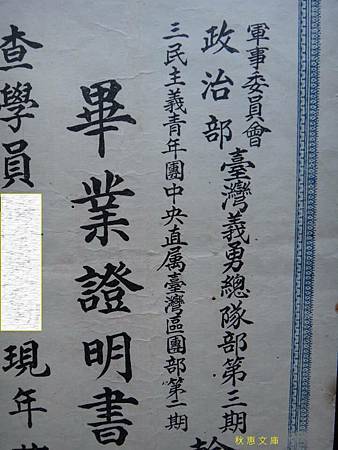 軍事委員會
政治部臺灣義勇總隊部第三期
三民主義青年團中央直属臺灣區團部第一期
畢業證明書
查學員
現年
秋惠文庫